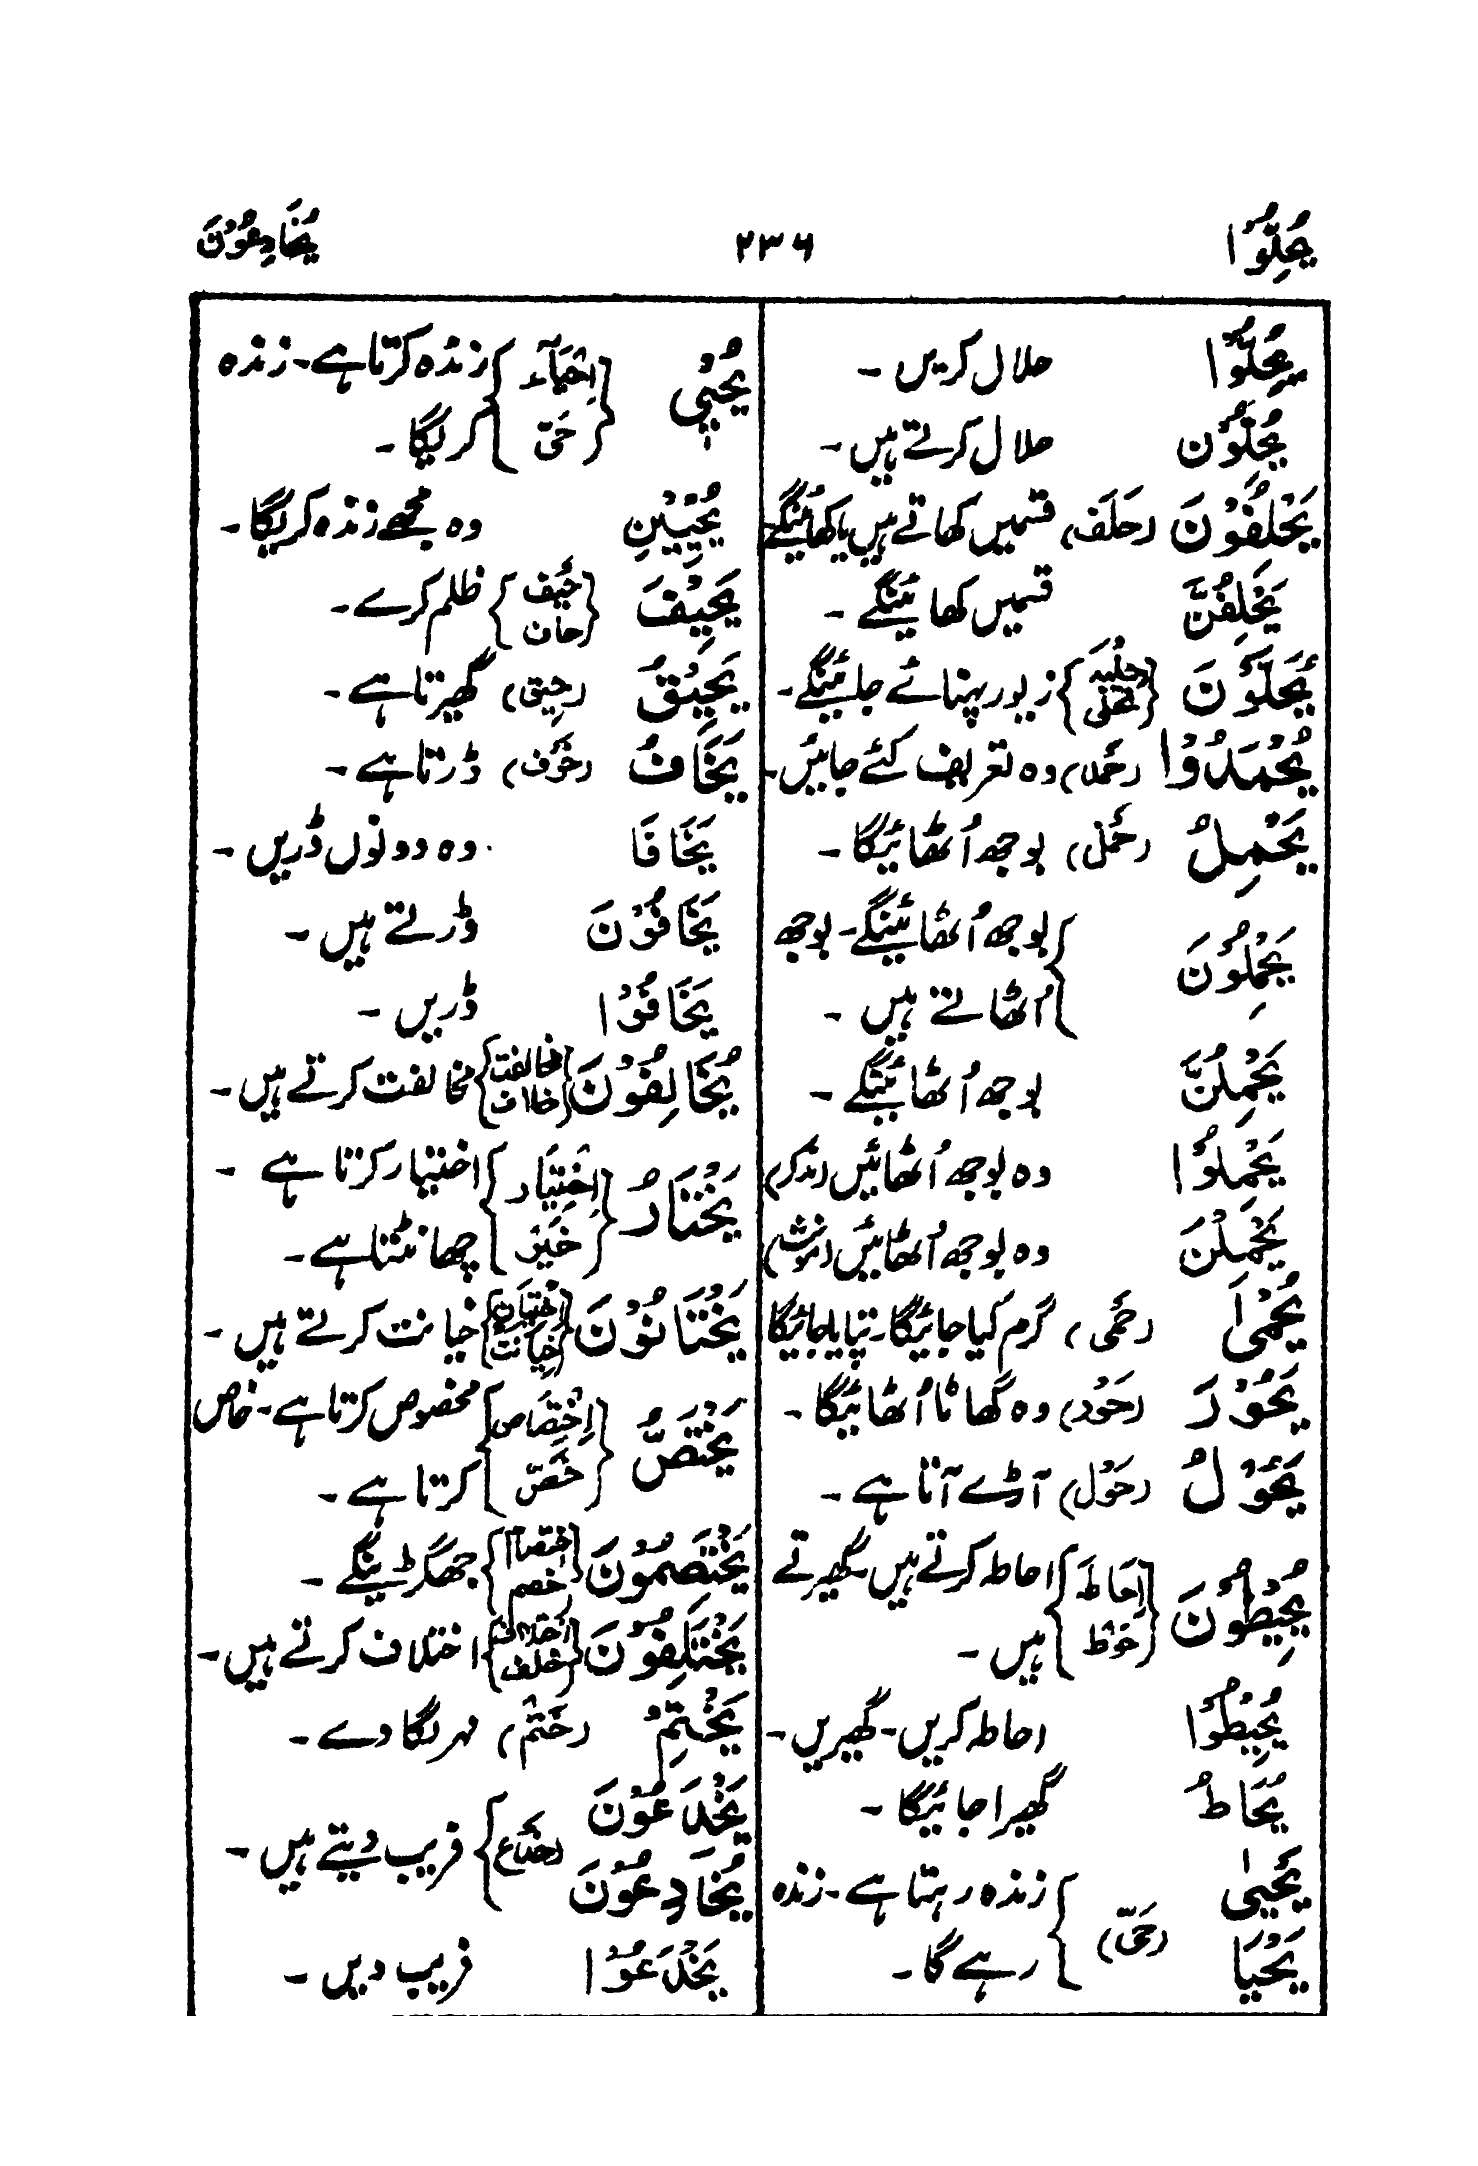 يُحِلُّوْا ۲۳۶ يُخَادِعُوْنَ
يُحِلُّوْا حلال کریں ۔
يُحِلُّوْن حلال کرتے ہیں ۔
يَحْلِفُوْنَ (حَلَف) قسمیں کھاتے ہیں یا کھائینگے
يَحْلِفُنَّ قسمیں کھائینگے ۔
يُحَلَّوْنَ (حِلْیَه تحلّی) زیور پہنائے جائینگے ۔
يُحْمَدُوْا (حَمْد) وہ تعریف کئے جائیں ۔
يَحْمِلُ (حَمْل) بوجھ اُٹھائیگا ۔
يَحْمِلُوْنَ بوجھ اُٹھائینگے ۔ بوجھ
اُٹھاتے ہیں ۔
يَحْمِلُنَّ بوجھ اُٹھائینگے ۔
يَحْمِلُوْا وہ بوجھ اُٹھائیں (مذکر)
يَحْمِلْنَ وہ بوجھ اُٹھائیں (مونث)
يُحْمٰى (حَمْی) گرم کیا جائیگا ۔ تپایا جائیگا
يَحُوْرَ (حَوْر) وہ گھاٹا اُٹھائیگا ۔
يَحُوْلُ (حَوْل) آڑے آتا ہے ۔
يُحِيْطُوْنَ (اِحَاطَه حَوْط) احاطہ کرتے ہیں ۔ گھیرتے
ہیں ۔
يُحِيْطُوْا احاطہ کریں ۔ گھیریں ۔
يُحَاطُ گھیرا جائیگا ۔
يَحْيٰى زندہ رہتا ہے ۔ زندہ
يَحْيَا (حَیّ) رہے گا ۔
يُحْيِيْ (اِحْیَآء حَیّ) زندہ کرتا ہے ۔ زندہ
کریگا ۔
يُحْيِيْنِ وہ مجھے زندہ کریگا ۔
يَحِيْفَ (حَیْف حاف) ظلم کرے ۔
يَحِيْقُ (حیق) گھیرتا ہے ۔
يَخَافُ (خَوْف) ڈرتا ہے ۔
يَخَافَا وہ دونوں ڈریں ۔
يَخَافُوْنَ ڈرتے ہیں ۔
يَخَافُوْا ڈریں ۔
يُخَالِفُوْنَ (مخالفت خلاف) مخالفت کرتے ہیں ۔
يَخْتَارُ (اِخْتِیَار خَیْر) اختیار کرتا ہے ۔
چھانٹتا ہے ۔
يَخْتَانُوْنَ (اختیان خیانت) خیانت کرتے ہیں ۔
يَخْتَصُّ (اِخْتِصَاص خَصّ) مخصوص کرتا ہے ۔ خاص
کرتا ہے ۔
يَخْتَصِمُوْنَ (اختصام خصم) جھگڑینگے ۔
يَخْتَلِفُوْنَ (اختلاف خلف) اختلاف کرتے ہیں ۔
يَخْتِمُ (خَتْم) مہر لگا دے ۔
يَخْدَعُوْنَ
يُخَادِعُوْنَ (خداع) فریب دیتے ہیں ۔
يَخْدَعُوْا فریب دیں ۔